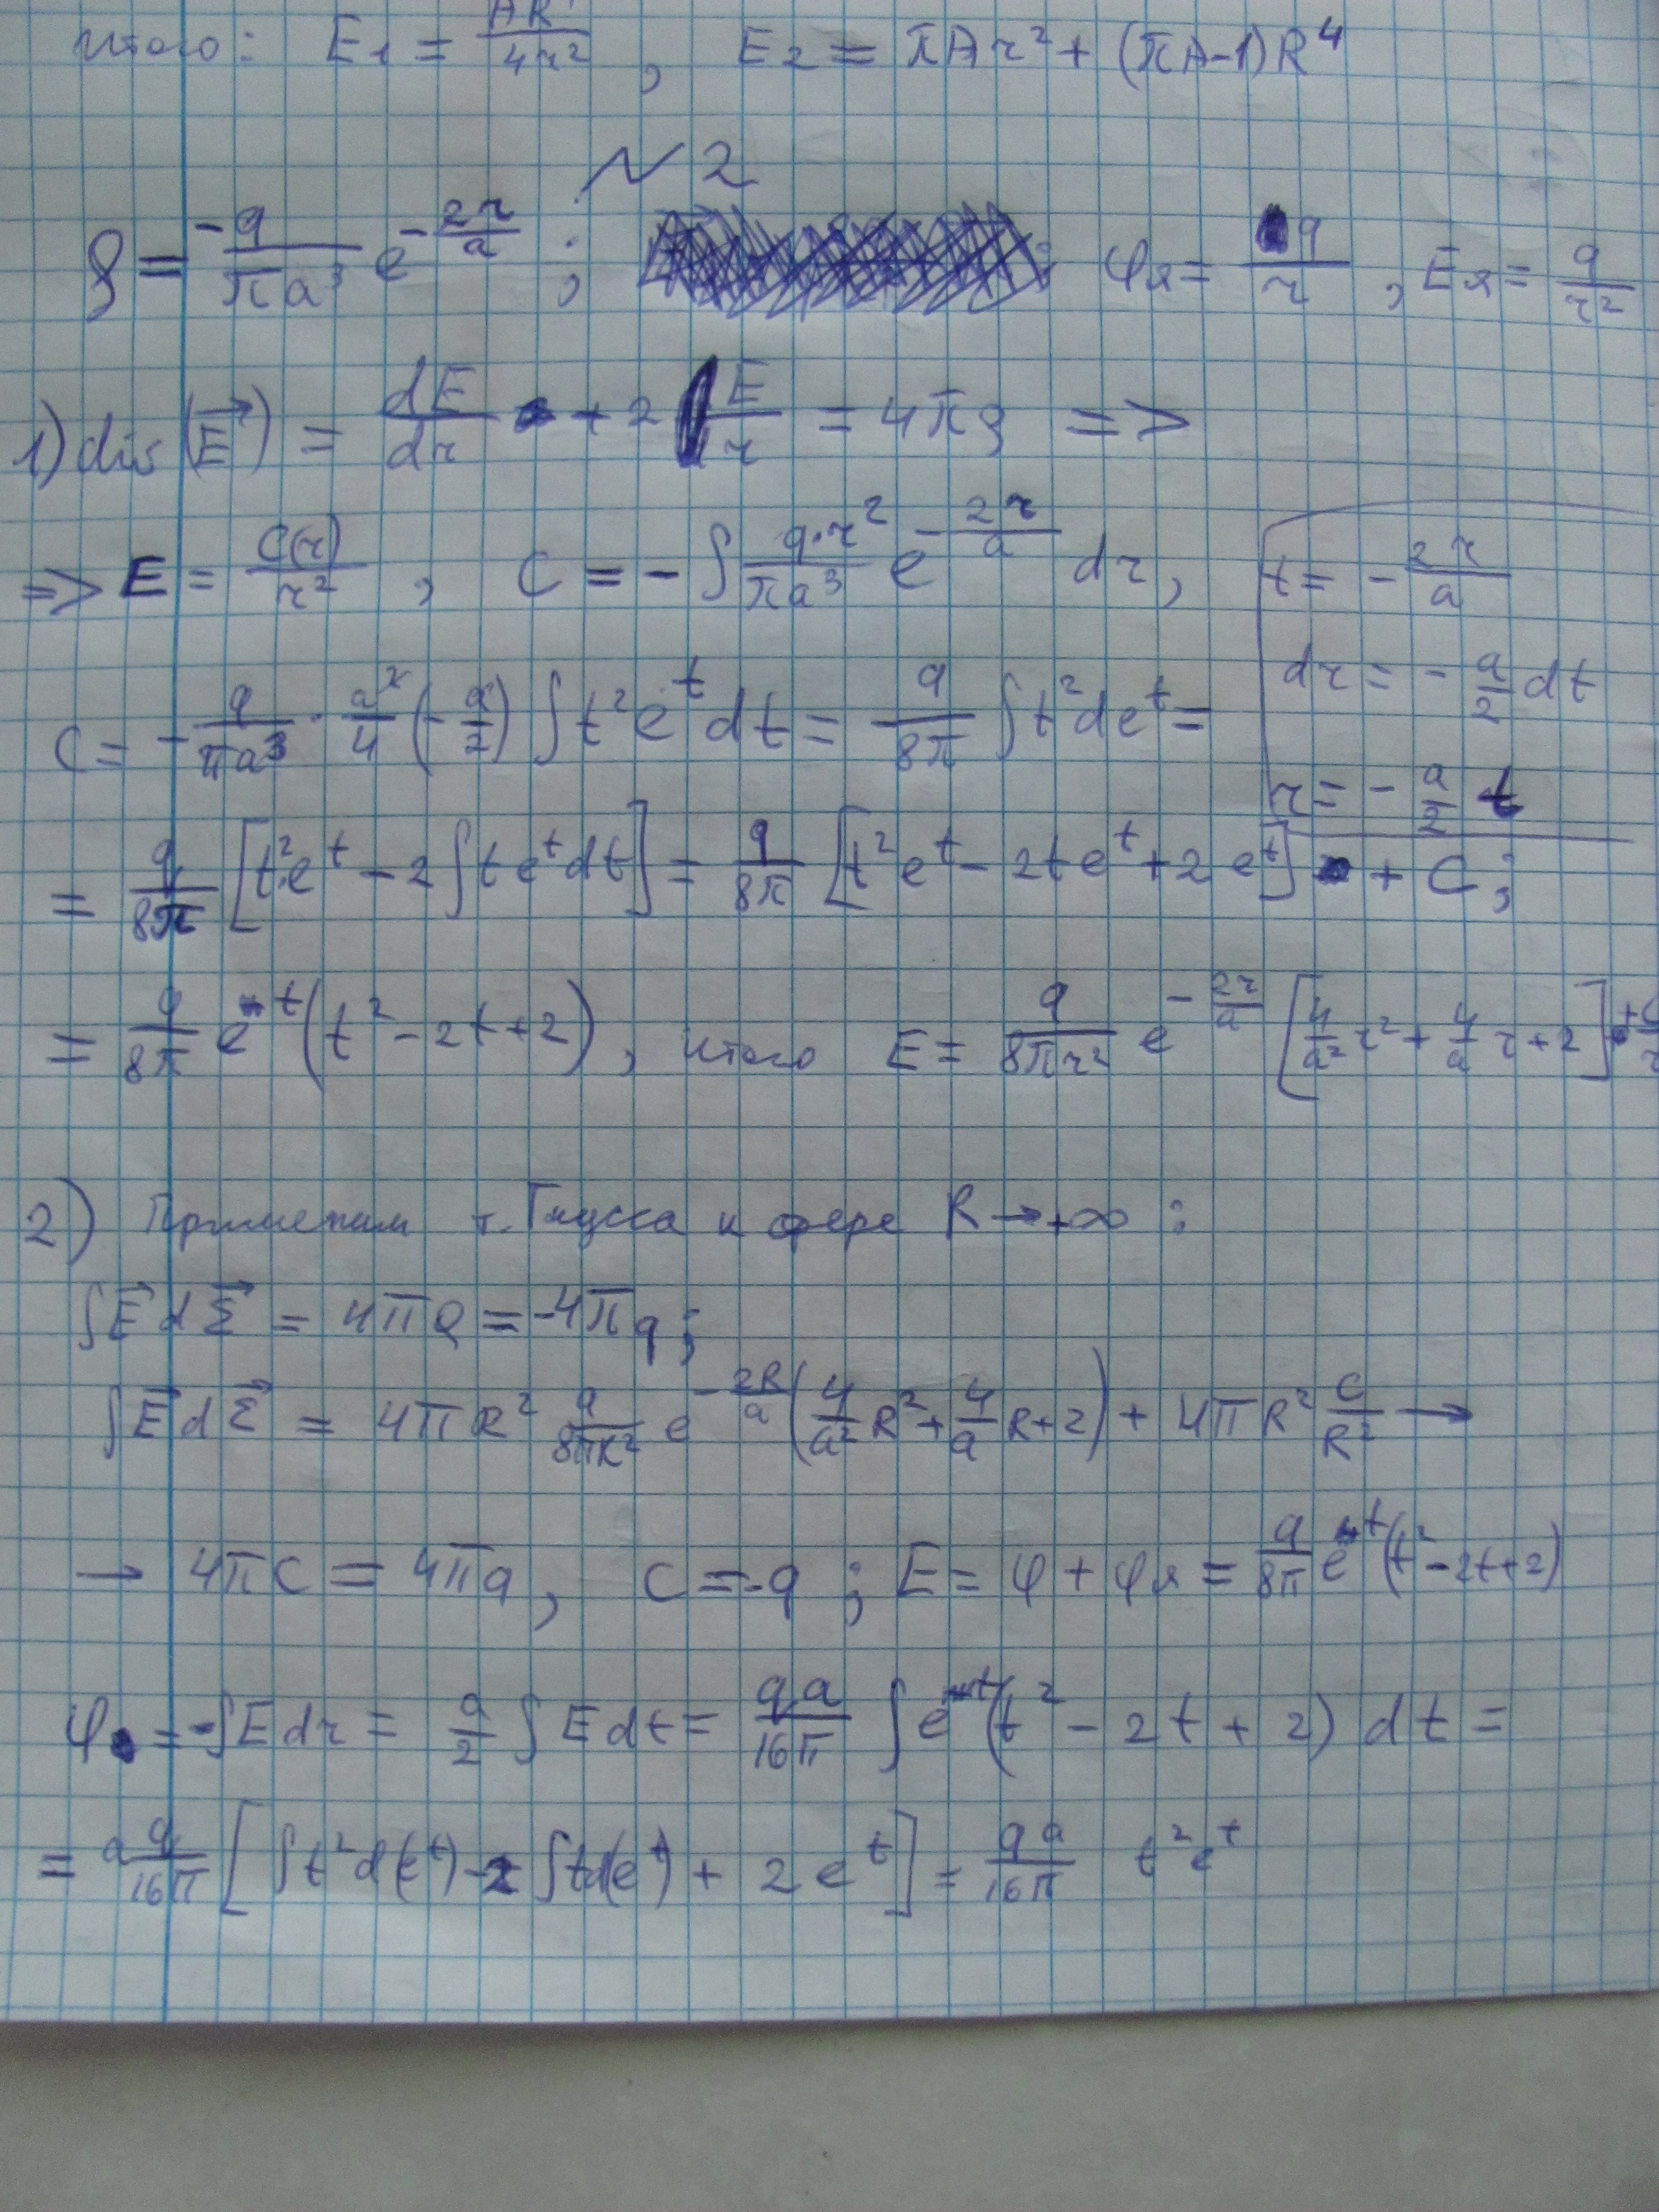 итого: E₁ = AR⁴/4r² , E₂ = πAr² + (πA-1)R⁴
№2
ρ = -q/πa³ e^(-2r/a) ; φя = q/r , Eя = q/r²
1) div(E⃗) = dE/dr + 2 E/r = 4πρ =>
=> E = C(r)/r² , C = - ∫ q·r²/πa³ e^(-2r/a) dr,
t = - 2r/a
dr = - a/2 dt
r = - a/2 t
C = - q/πa³ · a²/4 (-a/2) ∫ t² e^t dt = q/8π ∫ t² de^t =
= q/8π [t²·e^t - 2 ∫ t e^t dt] = q/8π [t² e^t - 2t e^t + 2 e^t] + C;
= q/8π e^t (t² - 2t + 2) , итого E = q/8πr² e^(-2r/a) [4/a² r² + 4/a r + 2] + C/r
2) Применим т. Гаусса к сфере R → +∞ :
∫E⃗ dΣ⃗ = 4πQ = -4πq;
∫E⃗ dΣ⃗ = 4πR² q/8πR² e^(-2R/a) (4/a² R² + 4/a R + 2) + 4πR² C/R² →
→ 4πC = 4πq , C = -q ; E = φ + φя = q/8π e^t (t² - 2t + 2)
φ = -∫E dr = a/2 ∫ E dt = qa/16π ∫ e^t (t² - 2t + 2) dt =
= a q/16π [∫t² d(e^t) - 2 ∫td(e^t) + 2 e^t] = qa/16π t² e^t